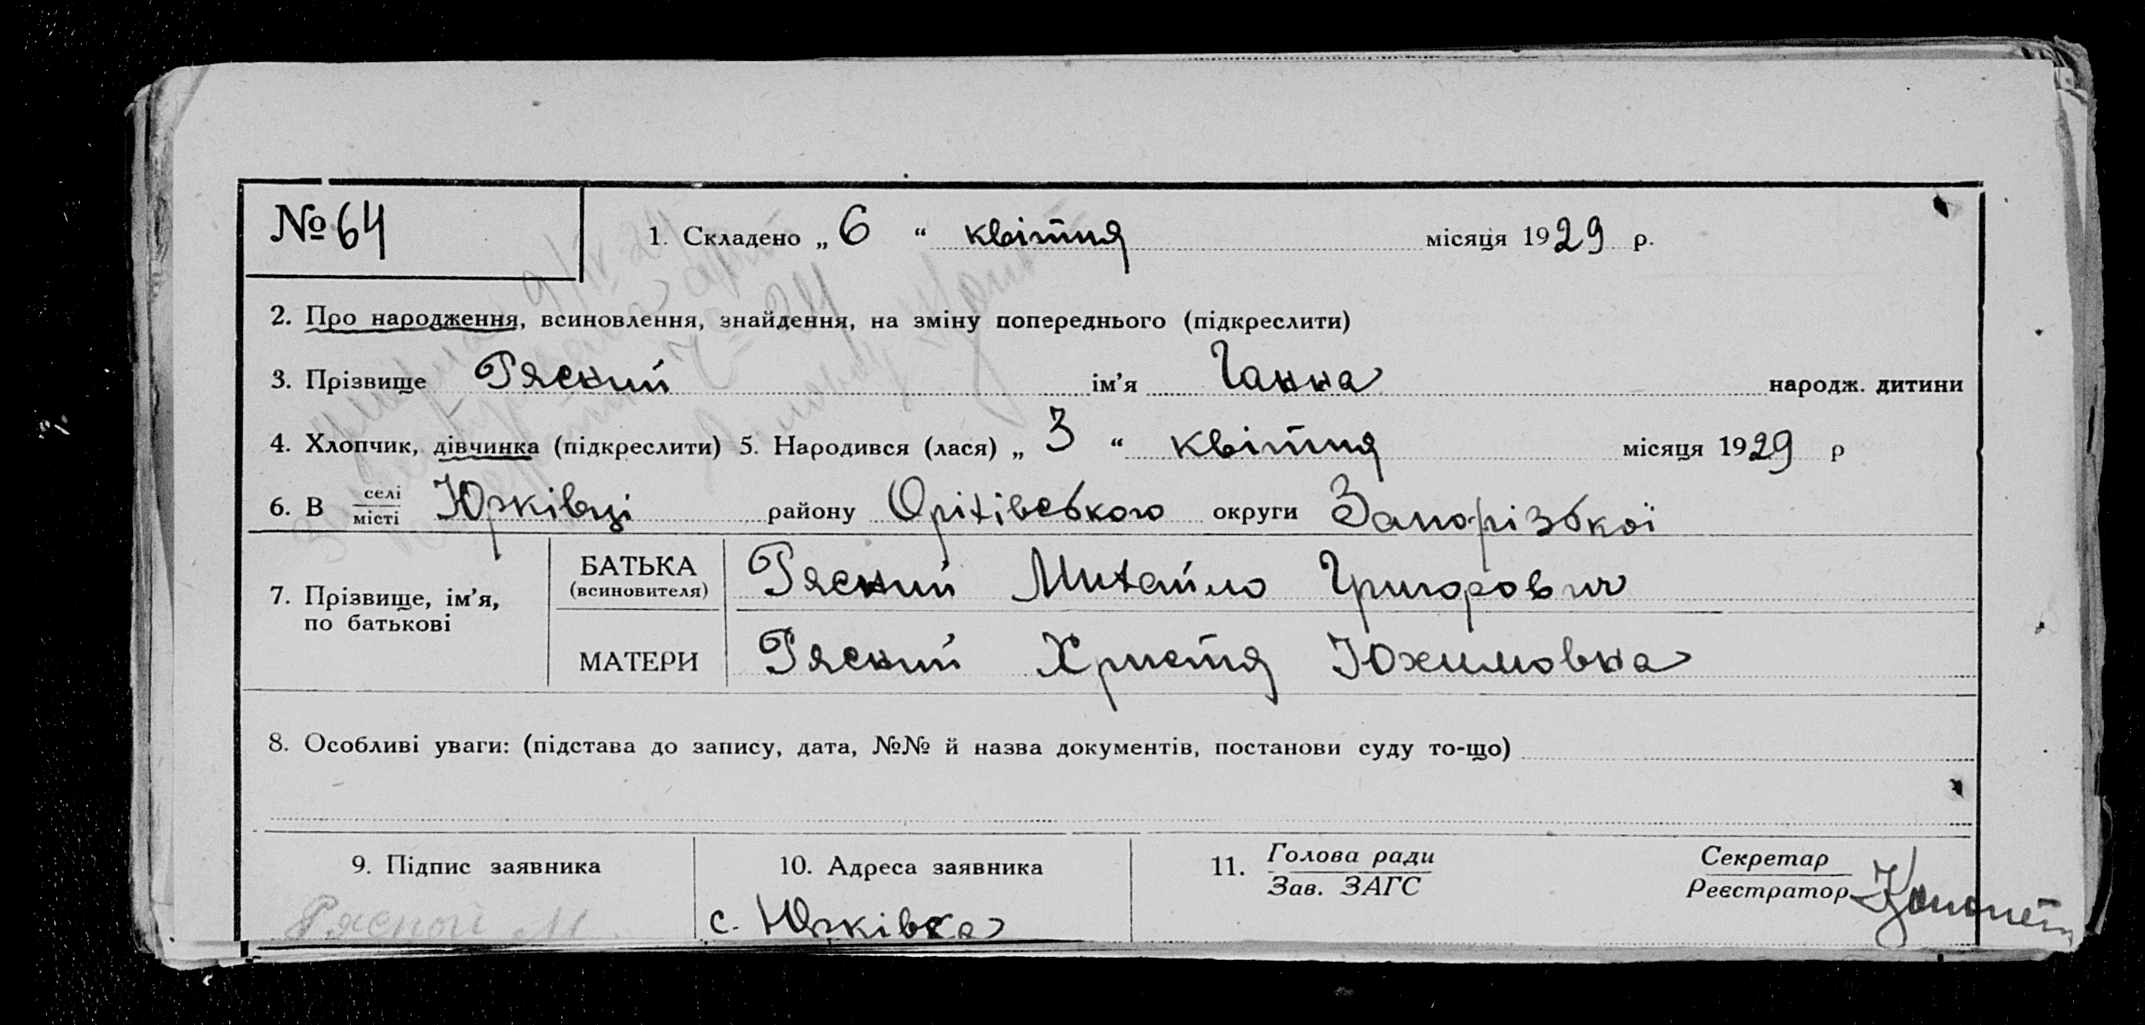 № 64
1. Складено „ 6 “ квітня місяця 1929 р.
2. Про народження, всиновлення, знайдення, на зміну попереднього (підкреслити)
3. Прізвище Рясний ім’я Ганна народж. дитини
4. Хлопчик, дівчинка (підкреслити) 5. Народився (лася) „ 3 “ квітня місяця 1929 р
6. В селі місті Юрківці району Оріхівського округи Запорізької
7. Прізвище, ім’я, по батькові
БАТЬКА (всиновителя) Рясний Михайло Григорович
МАТЕРИ Рясний Христя Юхимовна
8. Особливі уваги: (підстава до запису, дата, №№ й назва документів, постанови суду то-що)
9. Підпис заявника 10. Адреса заявника 11. Голова ради Зав. ЗАГС Секретар Реєстратор
Рясной М. с. Юрківка